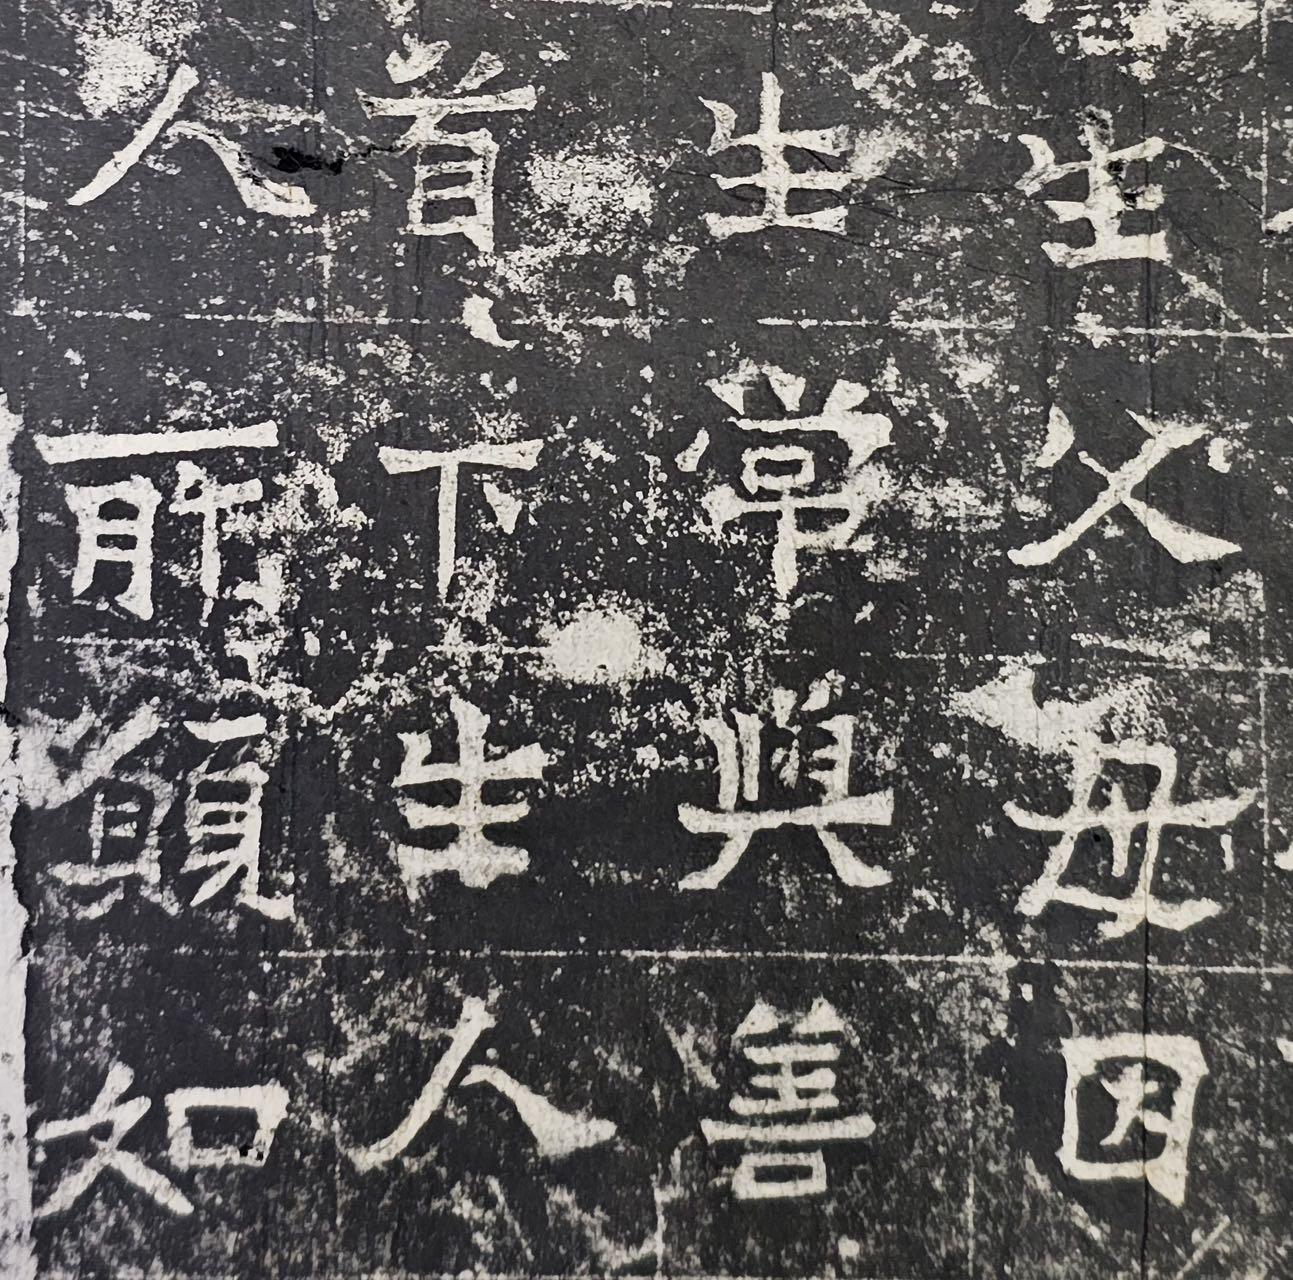 生父母因
生常與善
首下生人
人所願如